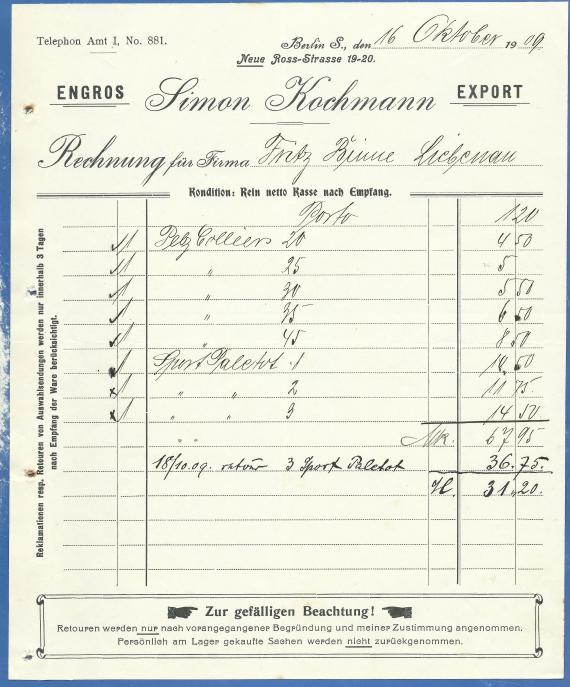 Telephon Amt I, No. 881.
Berlin S., den 16 Oktober 1909.
Neue Ross-Strasse 19-20.
ENGROS Simon Kochmann EXPORT
Rechnung für Firma Fritz Liebenau
Kondition: Rein netto Kasse nach Empfang.
Porto 1 20
1 Pelz Colliers 20 4 50
1 " 25 5
1 " 30 5 50
1 " 35 6 50
1 " 45 8 50
1 Sport Paletot 1 10 50
1 " " 2 11 75
1 " " 3 14 50
" " Mk. 67 95
18/10.09. retour 3 Sport Paletot 36.75.
M. 31,20.
Reklamationen resp. Retouren von Auswahlsendungen werden nur innerhalb 3 Tagen
nach Empfang der Ware berücksichtigt.
Zur gefälligen Beachtung!
Retouren werden nur nach vorangegangener Begründung und meiner Zustimmung angenommen.
Persönlich am Lager gekaufte Sachen werden nicht zurückgenommen.